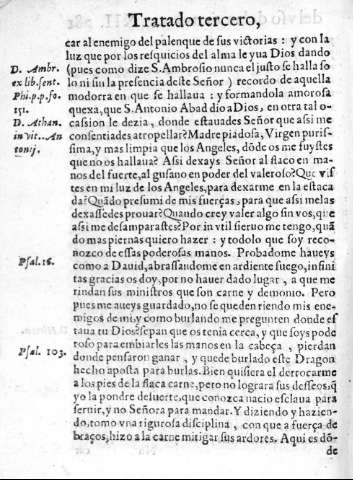 Tratado tercero,
car al enemigo del palenque de sus victorias : y con la
luz que por los resquicios del alma le yua Dios dando
D. Ambr. (pues como dize S. Ambrosio nunca el justo se halla so
ex lib. sent. lo ni sin la presencia deste Señor) recordo de aquella
Phi. p. p. fo. modorra en que se hallaua : y formandola amorosa
151. quexa, que S. Antonio Abad dio a Dios, en otra tal o-
D. Athan. casion le dezia, donde estauades Señor que assi me
in vit. An consentiades atropellar? Madre piadosa, Virgen puris-
tonij. sima, y mas limpia que los Angeles, dõde os me fuystes
que no os hallaua? Assi dexays Señor al flaco en ma
nos del fuerte, al gusano en poder del valeroso? Que vis
tes en mi luz de los Angeles, para dexarme en la estaca
da? Quãdo presumi de mis fuerças, para que assi me las
dexassedes prouar? Quando crey valer algo sin vos, que
assi me desamparastes? Por inutil sieruo me tengo, quã
do mas piernas quiero hazer : y todo lo que soy reco-
nozco de essas poderosas manos. Probadome haueys
Psal. 16. como a Dauid, abrassandome en ardiente fuego, infini
tas gracias os doy, por no hauer dado lugar, a que me
rindan sus ministros que son carne y demonio. Pero
pues me aueys guardado, no se queden riendo mis ene
migos de mi, y como burlando me pregunten donde es
taua tu Dios? sepan que os tenia cerca, y que soys pode
Psal. 103. roso para embiarles las manos en la cabeça, pierdan
donde pensaron ganar, y quede burlado este Dragon
hecho aposta para burlas. Bien quisiera el derrocarme
a los pies de la flaca carne, pero no lograra sus desseos, q̃
yo la pondre de suerte, que conozca nacio esclaua para
seruir, y no Señora para mandar. Y diziendo y hazien-
do, tomo vna rigurosa disciplina, con que a fuerça de
braços, hizo a la carne mitigar sus ardores. Aqui es dõ-
de